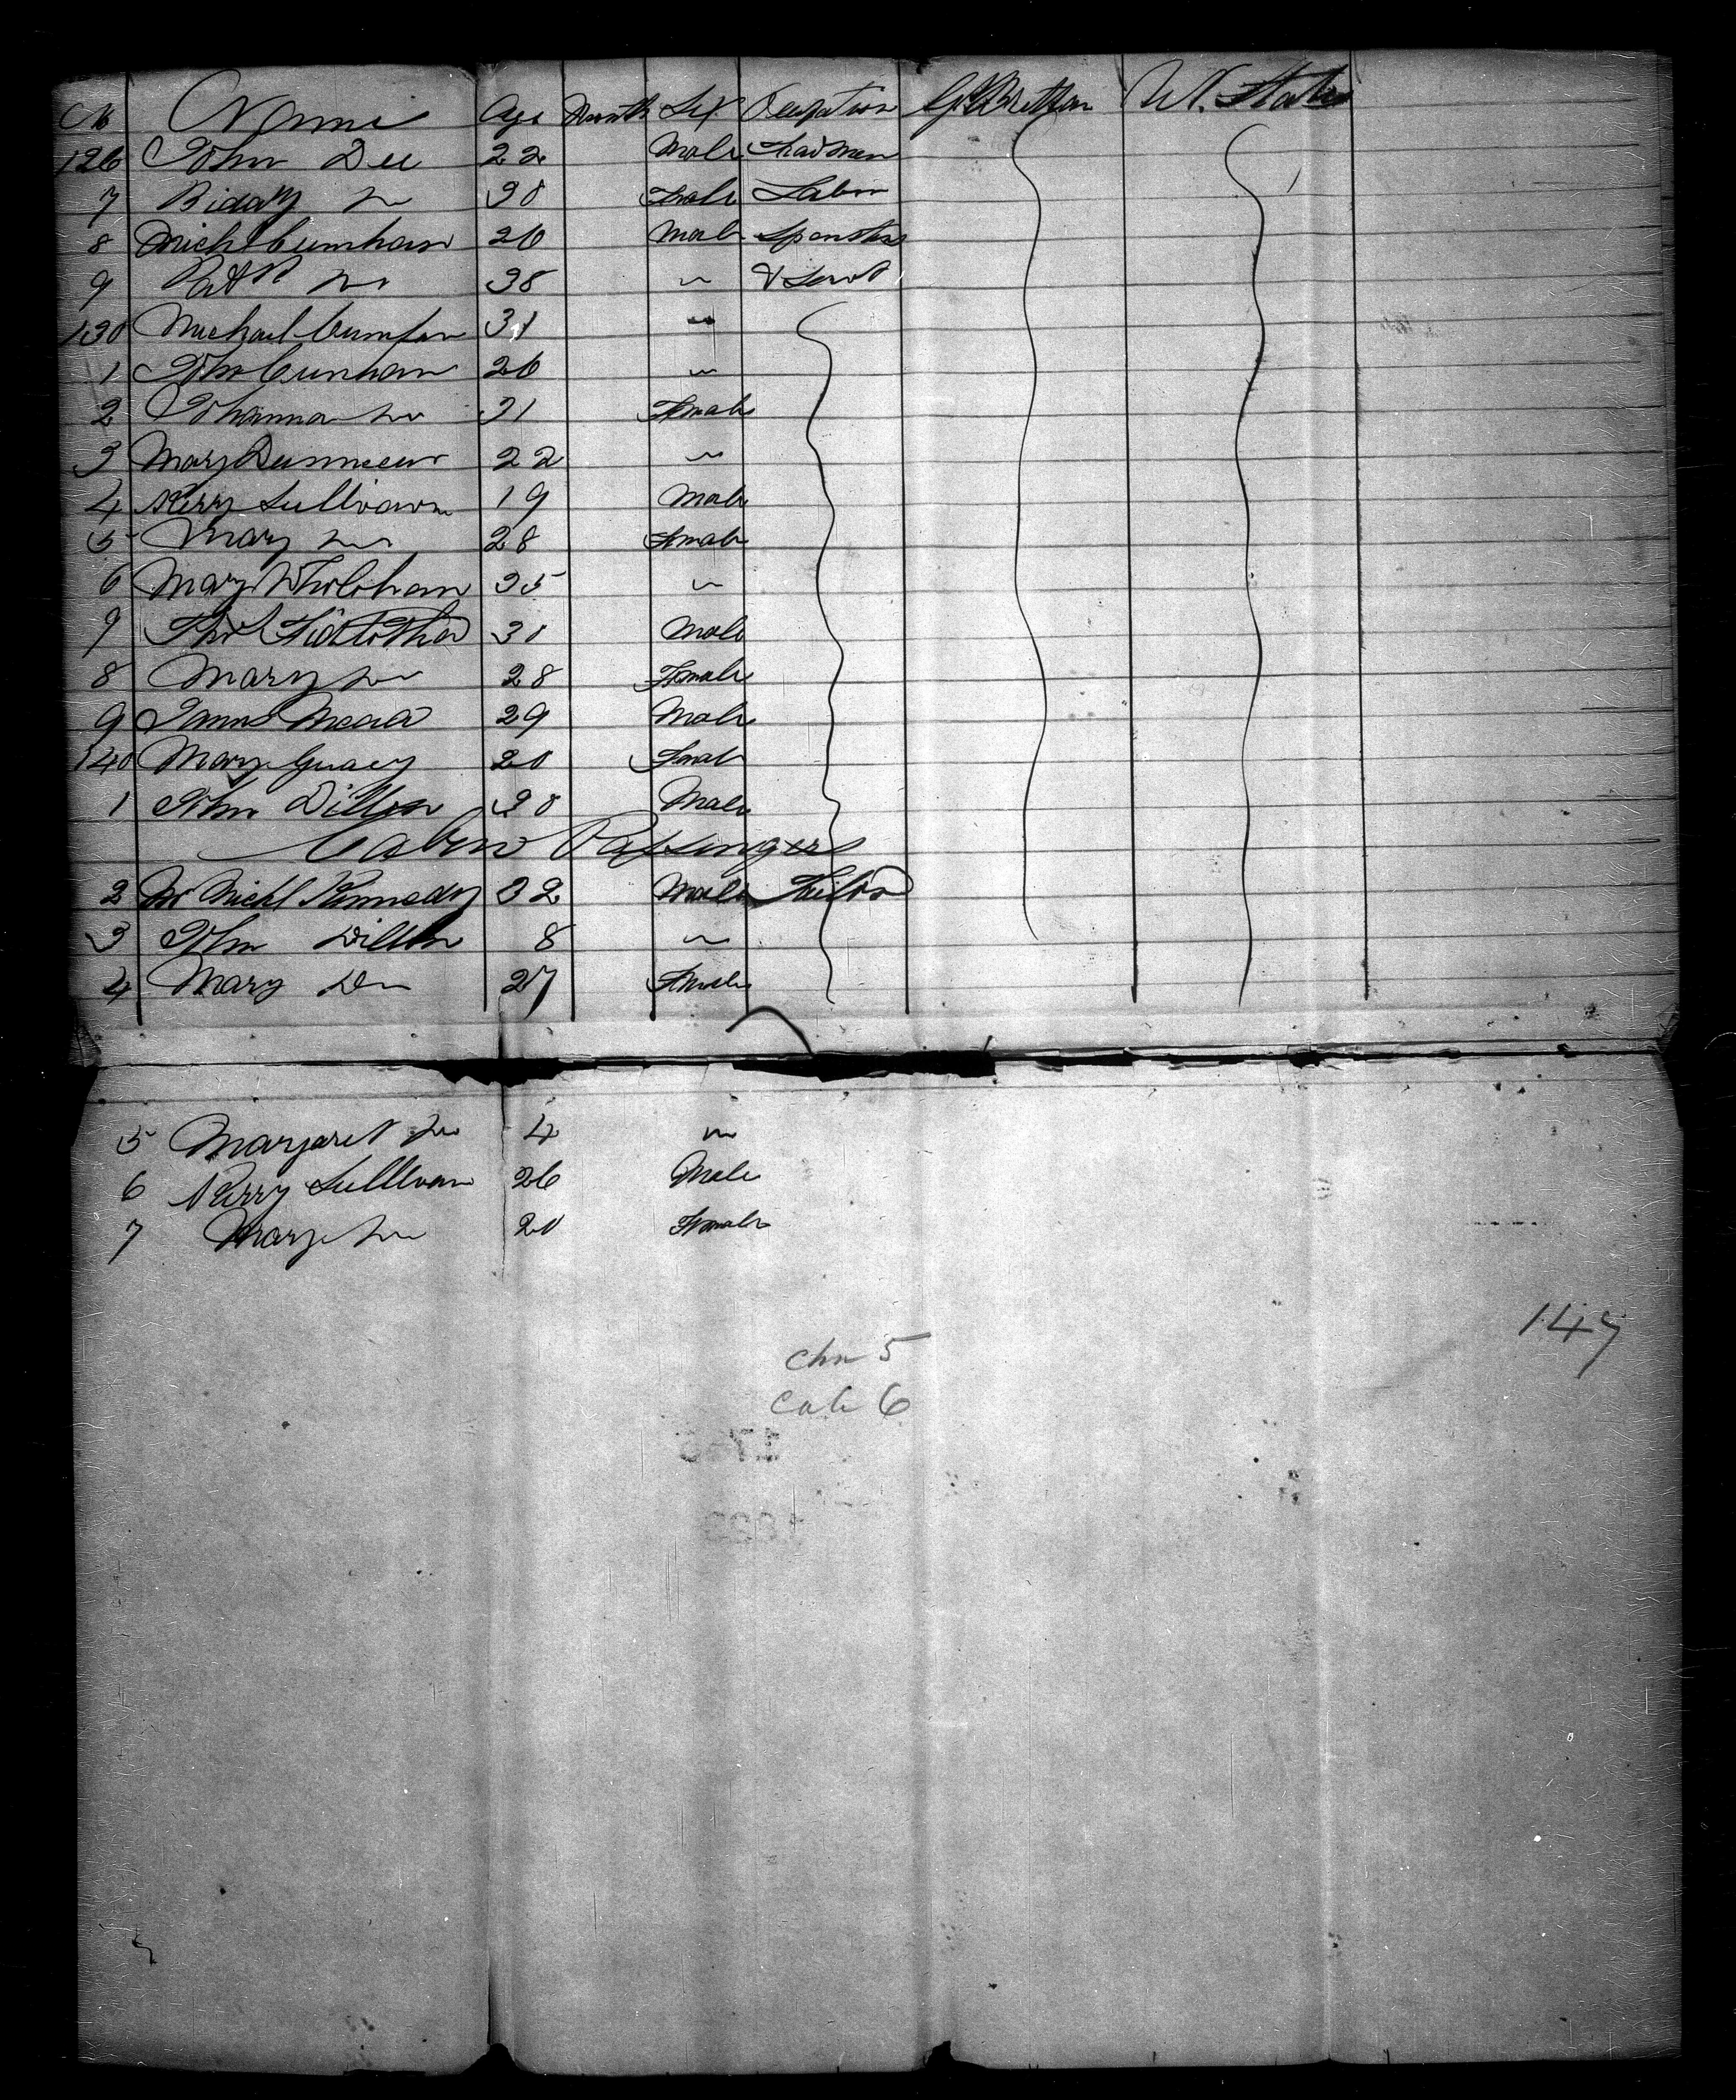 No Name Age Month Sex Occupation Gt Brittan Ud. States
126 John Dee 22 Male Trad Men
7 Biddy Do 30 Femals Labrs
8 Michl Cunnhan 20 Male Spinsters
9 Patk Do 38 " & Servt
130 Michael 31 "
1 John Cunnhan 20 "
2 Johanna Do 31 Female
3 Mary 22 "
4 Perry Sullivan 19 Male
5 Mary Do 28 Female
6 Mary 35 "
7 30 Male
8 Mary Do 28 Female
9 James Meara 29 Male
140 Mary 20 Female
1 John Dillon 30 Male
Cabin Passingers
2 Mr Michl Kennedy 32 Male
3 John Dillon 8 "
4 Mary Do 27 Female
5 Margaret Do 4 "
6 Perry Sullivan 26 Male
7 Mary Do 20 Female
147
chn 5
Cab 6